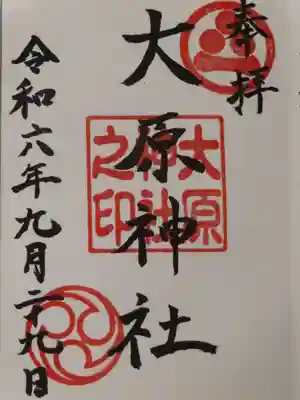 奉拝
大原神社
大原神社之印
令和六年九月二十九日